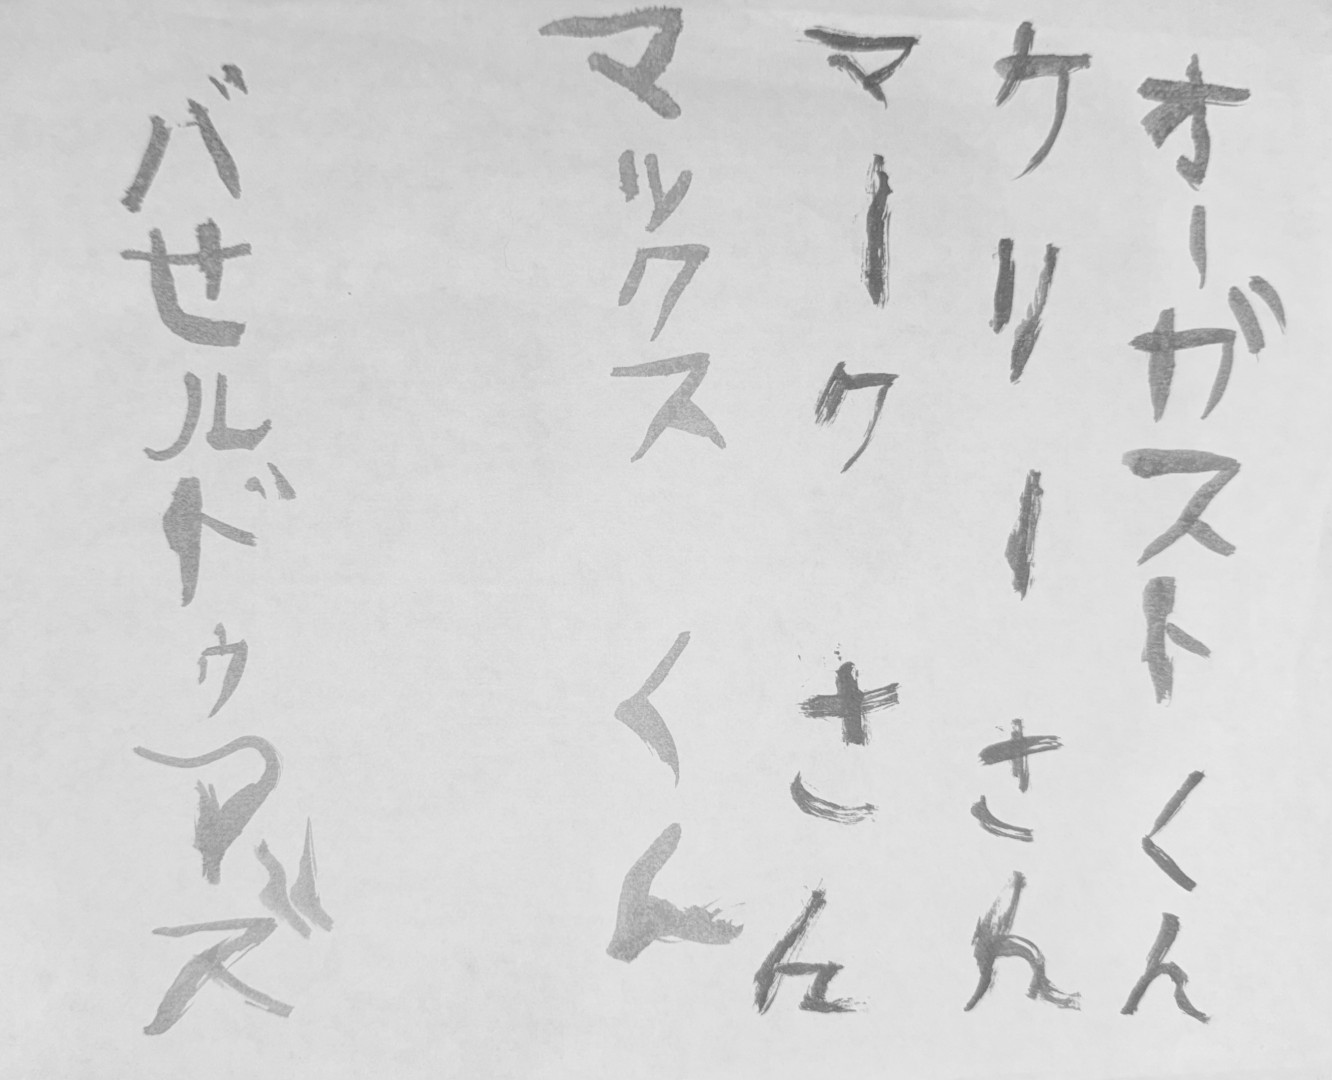 オーガスト くん
ケリー さん
マーク さん
マックス くん
バセルドゥアズ